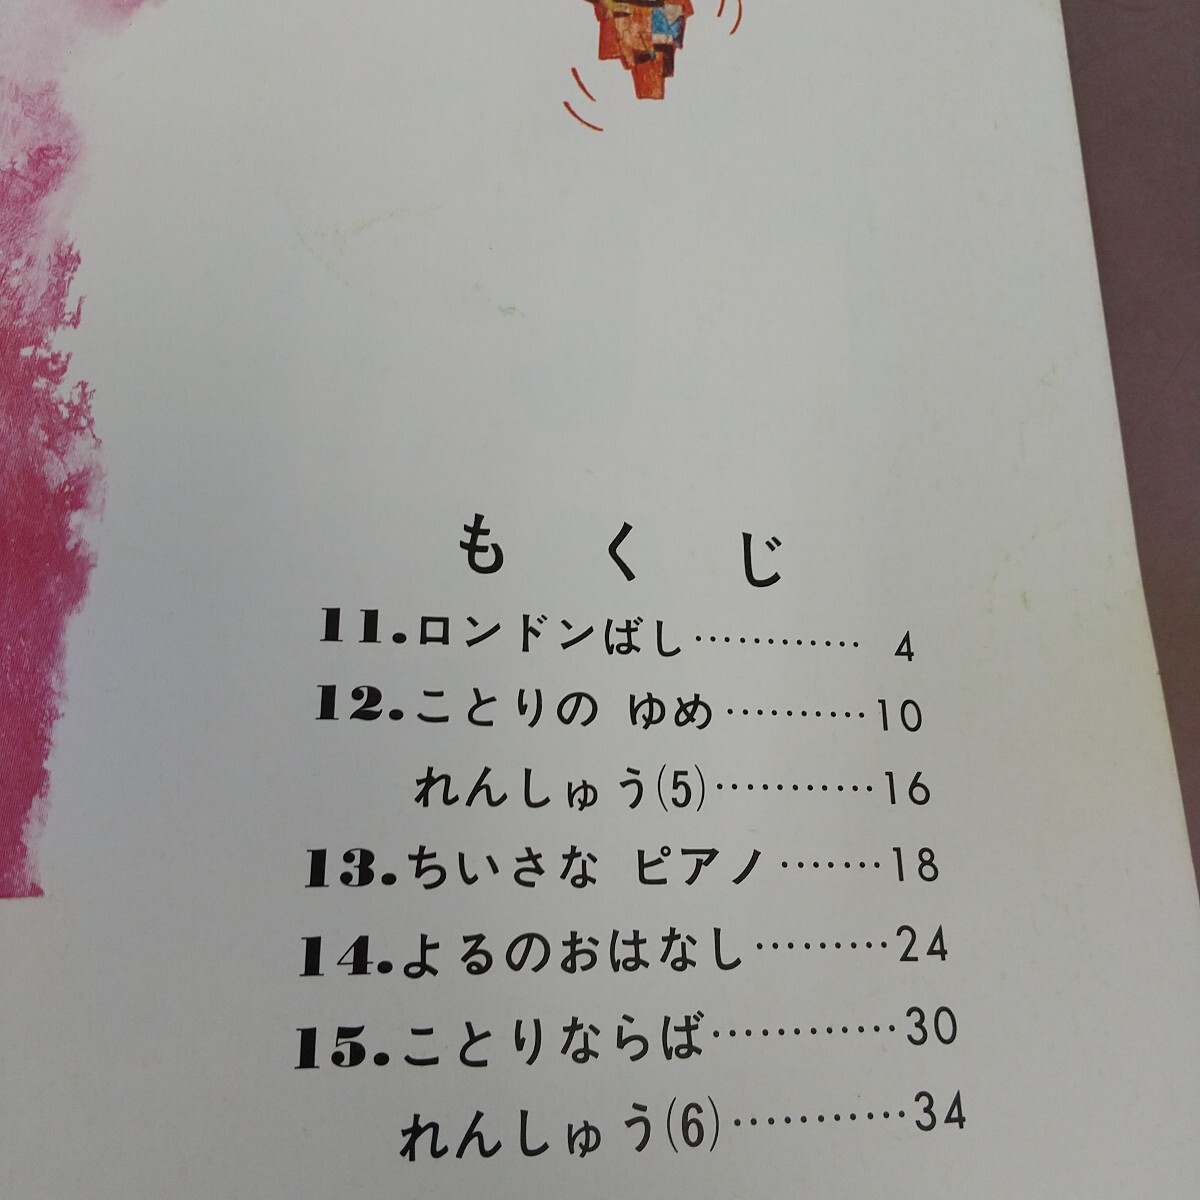 もくじ
11.ロンドンばし…………4
12.ことりの ゆめ………10
れんしゅう(5)…………16
13.ちいさな ピアノ……18
14.よるのおはなし………24
15.ことりならば…………30
れんしゅう(6)…………34